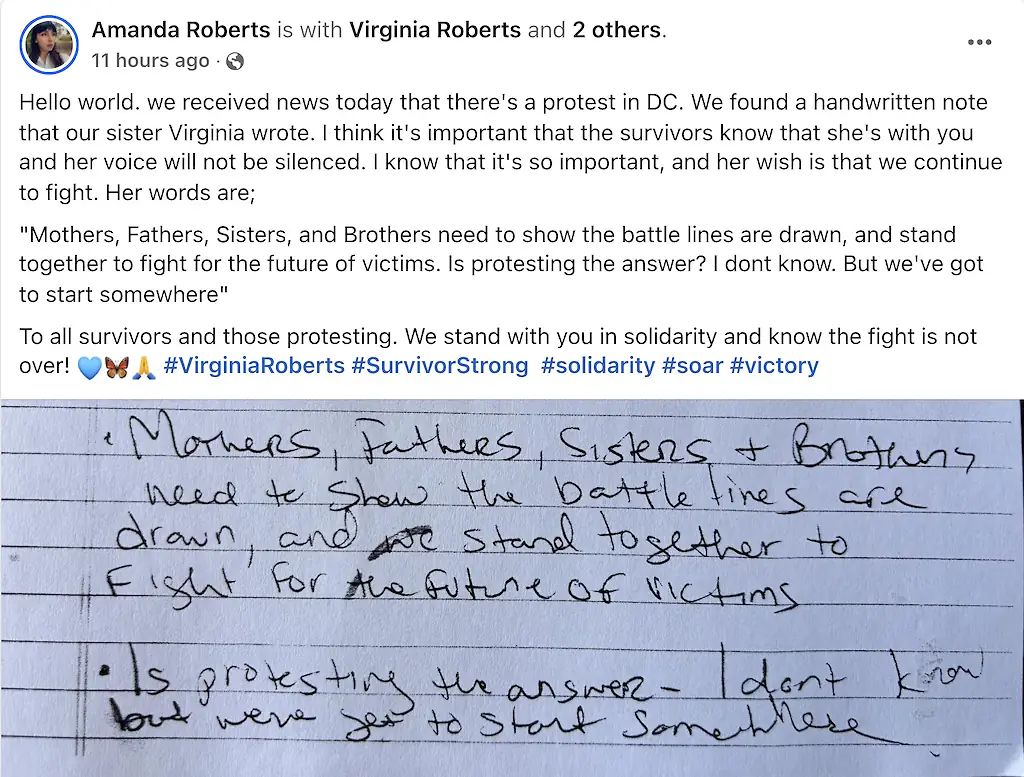 Amanda Roberts is with Virginia Roberts and 2 others.
11 hours ago ·
Hello world. we received news today that there's a protest in DC. We found a handwritten note
that our sister Virginia wrote. I think it's important that the survivors know that she's with you
and her voice will not be silenced. I know that it's so important, and her wish is that we continue
to fight. Her words are;
"Mothers, Fathers, Sisters, and Brothers need to show the battle lines are drawn, and stand
together to fight for the future of victims. Is protesting the answer? I dont know. But we've got
to start somewhere"
To all survivors and those protesting. We stand with you in solidarity and know the fight is not
over! 💙🦋🙏 #VirginiaRoberts #SurvivorStrong #solidarity #soar #victory
• Mothers, Fathers, Sisters + Brothers
need to show the battle lines are
drawn, and stand together to
Fight for the future of victims
• Is protesting the answer - I dont know
but weve got to start somewhere